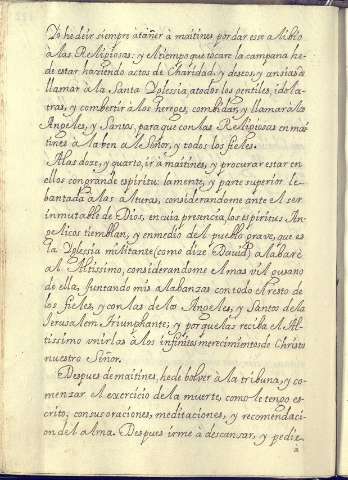 Yo he de ir siempre a tañer à maitines por dar esse alibio
à las Religiosas: y el tiempo que tocare la campana he
de estar haziendo actos de Charidad, y deseos, y ansias de
llamar à la Santa Yglesia a todos los gentiles, idola-
tras, y combertir à los hereges, combidar, y llamar à los
Angeles, y Santos, para que con las Religiosas en mai
tines alaben al Señor, y todos los fieles.
A las doze, y quarto, ir à maitines, y procurar estar en
ellos con grande espiritu la mente, y parte superior le-
bantada à las alturas, considerandome ante el ser
inmutable de Dios, en cuia presencia los espiritus An-
gelicos tiemblan, y en medio del pueblo grave, que es
la Yglesia militante (como dize David) alabarè
al Altissimo, considerandome el mas vil gusano
de ella, juntando mis alabanzas con todo el resto de
los fieles, y con las de los Angeles, y Santos de la
Jerusalem triunphante; y porque las reciba el Al-
tissimo unirlas à los infinitos merecimientos de Christo
nuestro Señor.
Despues de maitines, he de bolver à la tribuna, y co-
menzar el exercicio de la muerte, como le tengo es-
crito, con sus oraciones, meditaciones, y recomendaci-
on del alma. Despues irme à descansar, y pedir